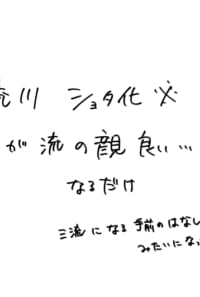 流川 ショタ化 ※
が流の顔良い…
なるだけ
三流になる手前のはなし
みたいにな